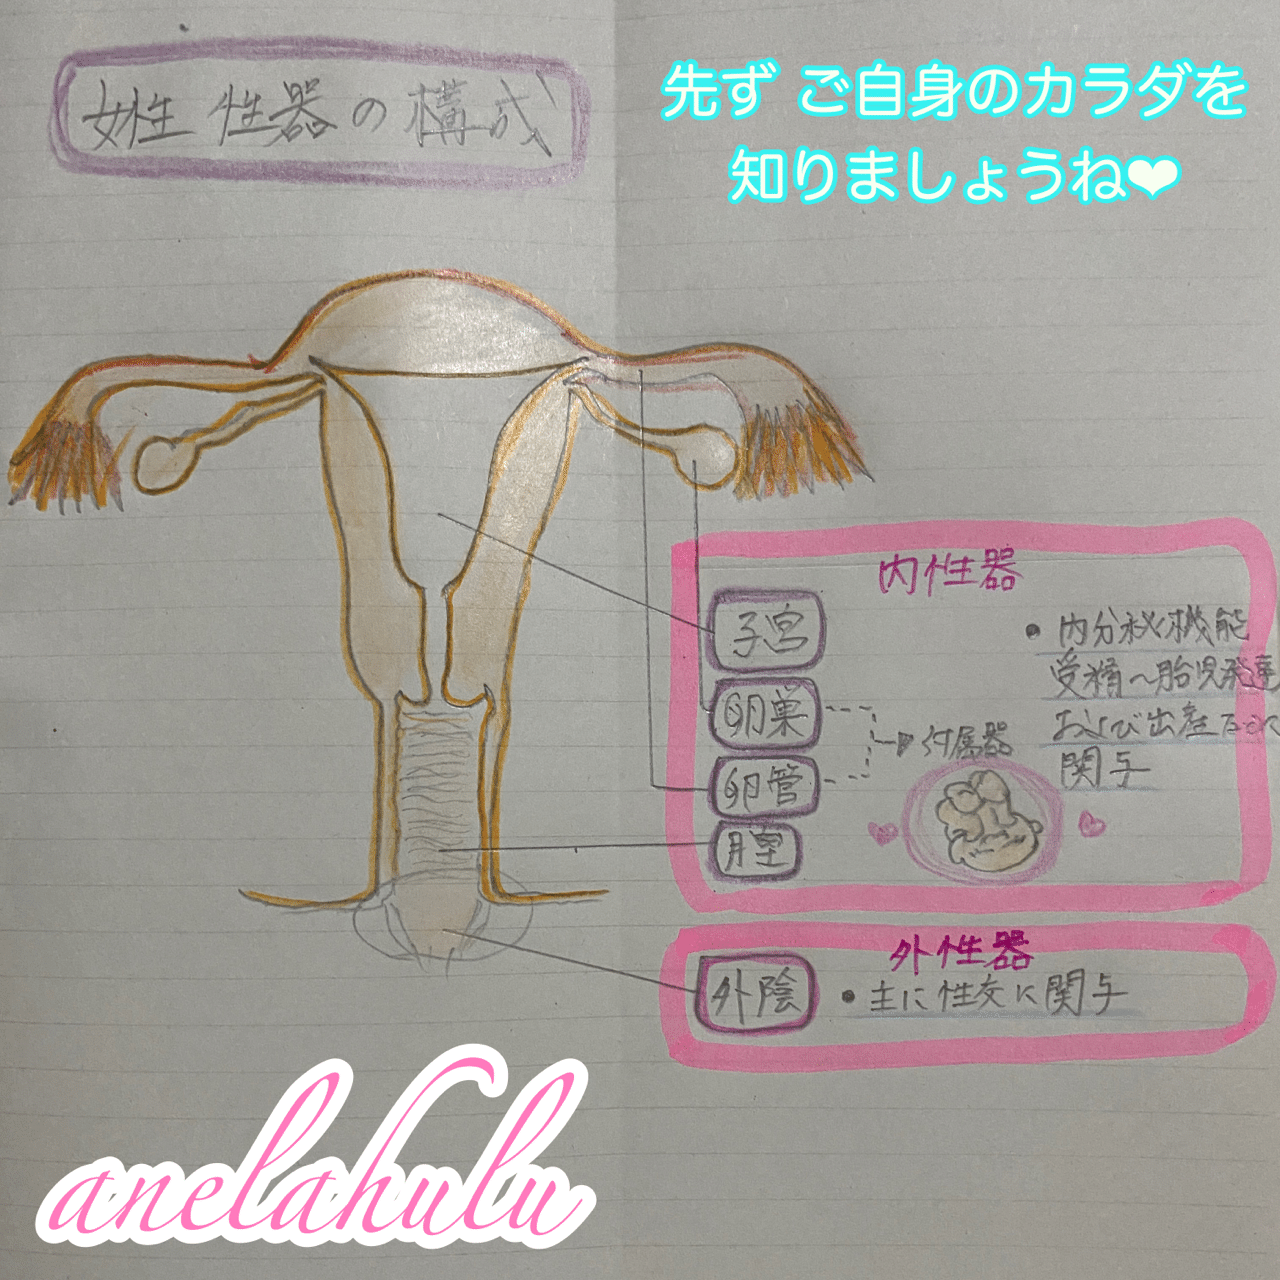 女性 性器の構成
先ず ご自身のカラダを
知りましょうね❤
内性器
子宮
卵巣
卵管
膣
付属器
• 内分泌機能
受精〜胎児発達
および出産などに
関与
外性器
外陰
• 主に性交に関与
anelahulu